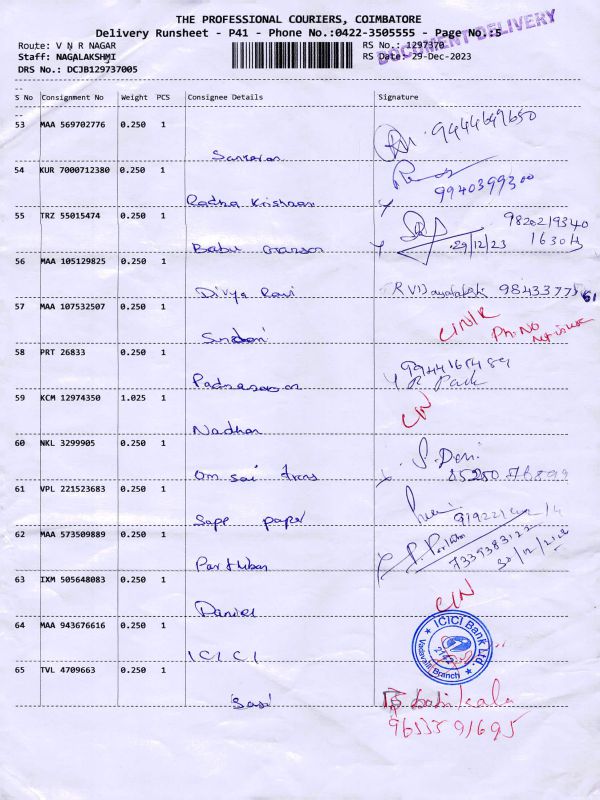 THE PROFESSIONAL COURIERS, COIMBATORE
Delivery Runsheet - P41 - Phone No.:0422-3505555 - Page No.:5
DOCUMENT DELIVERY
Route: V N R NAGAR RS No.: 1297370
Staff: NAGALAKSHMI RS Date: 29-Dec-2023
DRS No.: DCJB129737005
S No Consignment No Weight PCS Consignee Details Signature
53 MAA 569702776 0.250 1 9444649650
54 KUR 7000712380 0.250 1 Radha Krishnan 9940399300
55 TRZ 55015474 0.250 1 Babu 9820219340
29/12/23 1630H
56 MAA 105129825 0.250 1 Divya Ravi
57 MAA 107532507 0.250 1 Ph.No
58 PRT 26833 0.250 1
59 KCM 12974350 1.025 1 Nadhan
60 NKL 3299905 0.250 1 Om sai trans
61 VPL 221523683 0.250 1 Sapp paper
62 MAA 573509889 0.250 1 Parthiban 7339383122
63 IXM 505648083 0.250 1 Daniel
64 MAA 943676616 0.250 1 ICICI
ICICI Bank Ltd.
Vadavalli Branch
65 TVL 4709663 0.250 1 Sasi